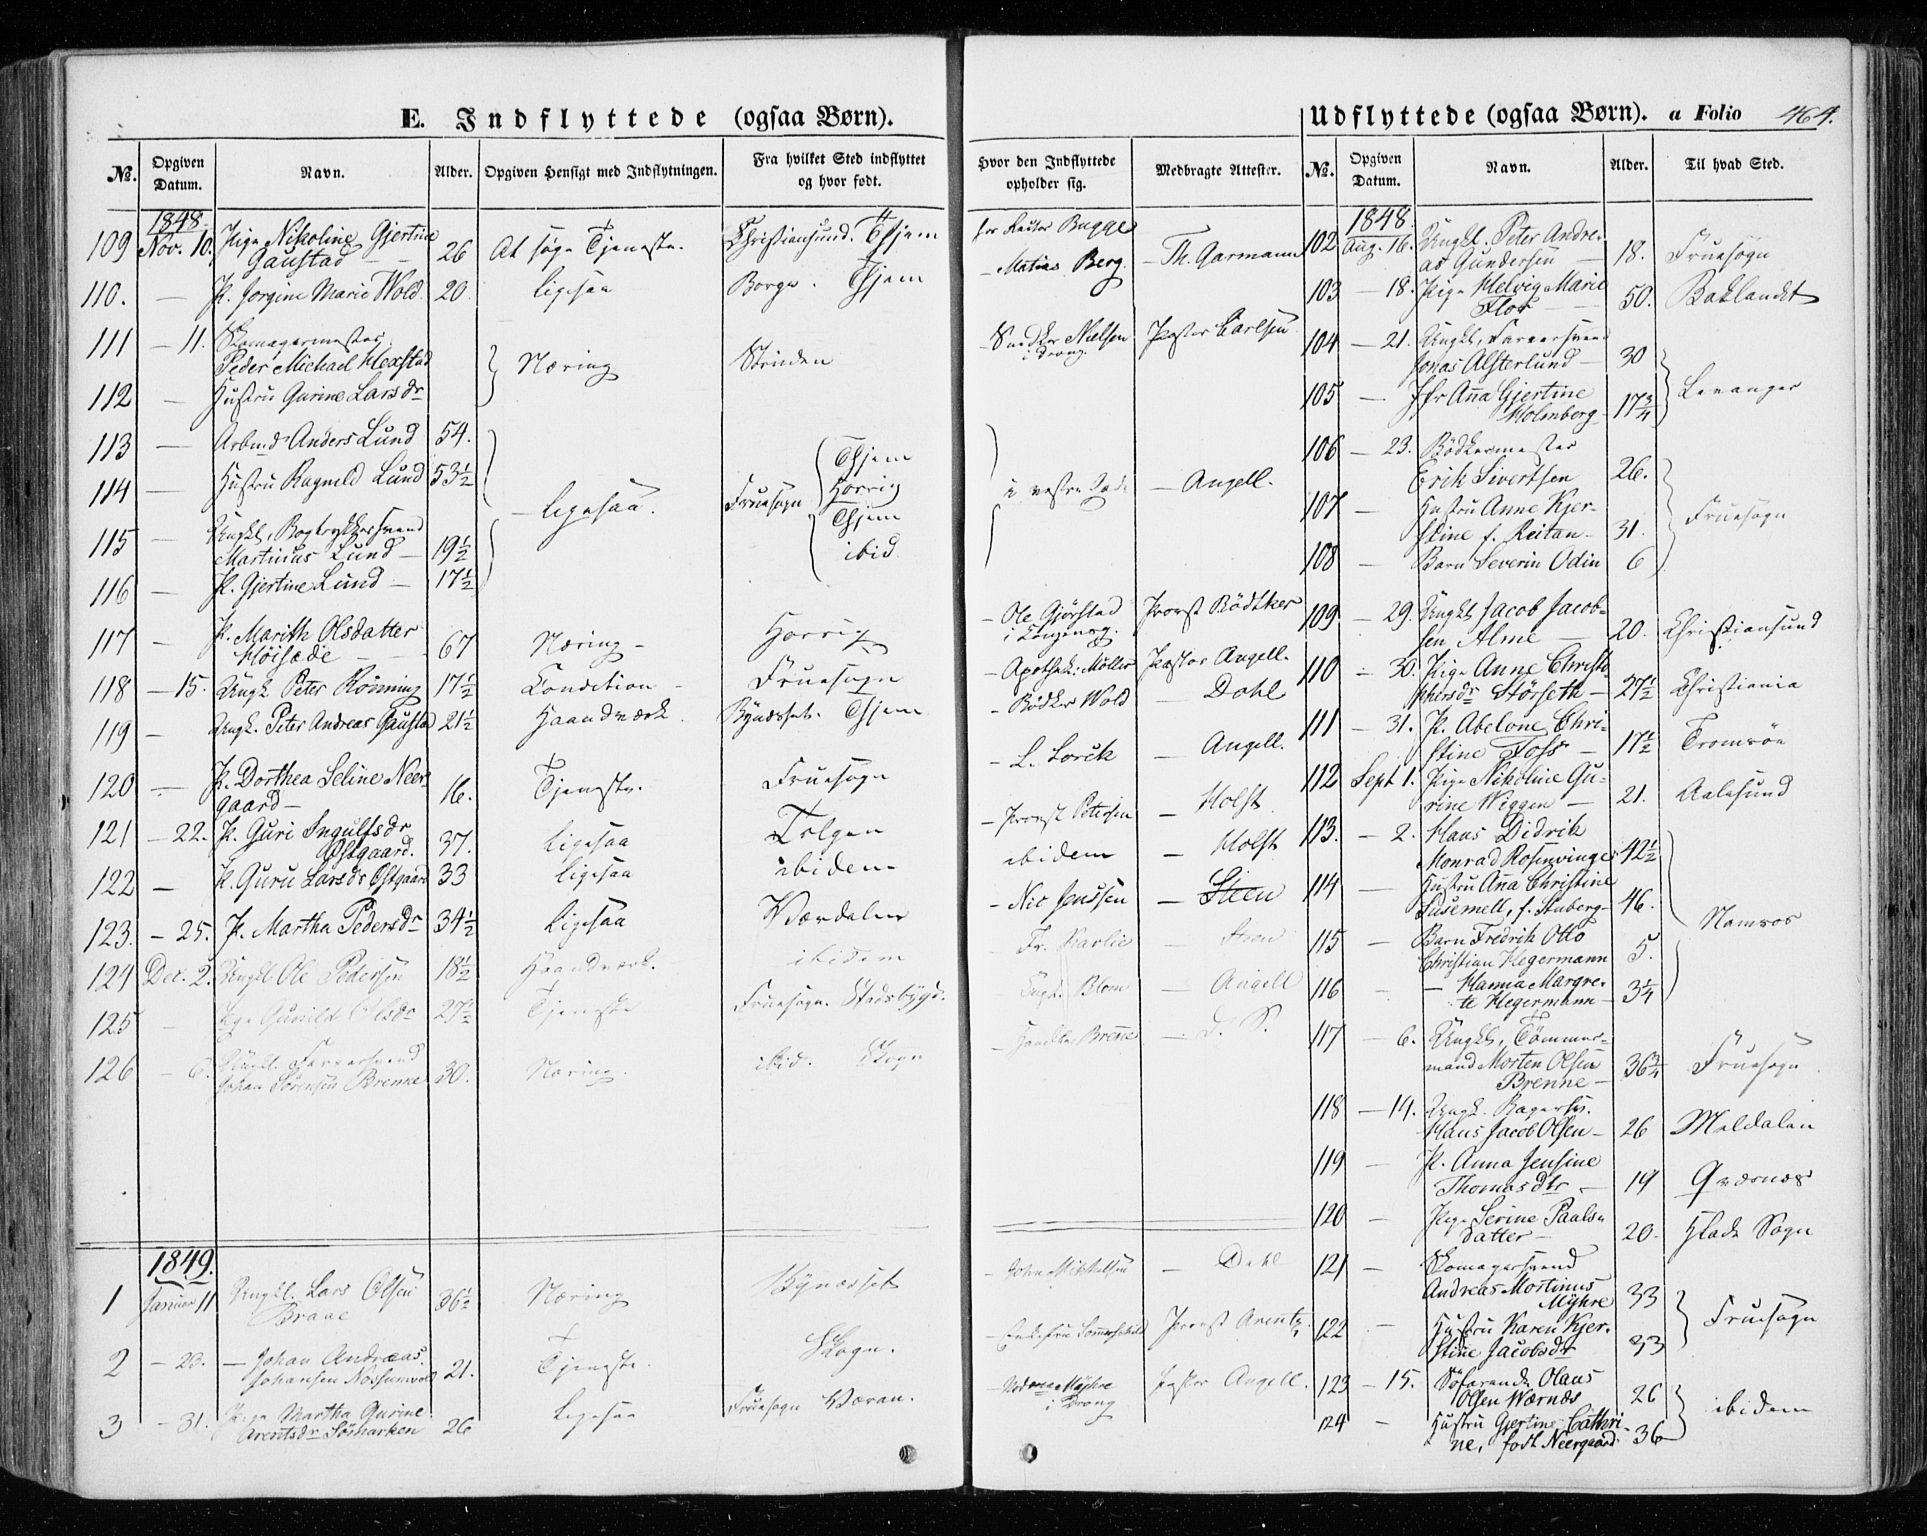 E. Indflyttede (ogsaa Børn).
Udflyttede (ogsaa Børn). a Folio 464.
No. Opgiven Datum. Navn. Alder. Opgiven Hensigt med Indflytningen. Fra hvilket Sted indflyttet og hvor født. Hvor den Indflyttede opholder sig. Medbragte Attester.
1848.
109 Nov. 10. Pige Nikoline Gjertine
Gaustad 26 At søge Tjeneste. Christiansund. Thjem
110. — P. Jorgine Marie Wold 20 ligesaa Borge. Thjem — Matias Berg. — Th. Garmann
111 — 11. Skomagermester
Peder Michael Hexstad } Næring Strinden — Snedker Nielsen Pastor Carlsen
112 — Hustru Gurine Larsdr
113 — Arbmd Anders Lund 54.
114 — Hustru Ragnild Lund 53½ ligesaa. Fruesogn Thjem Horrig — Angell.
115 — Ungkl. Bogtrykkersvend
Martinus Lund — 19½ Thjem
116 — P. Gjertine Lund — 17½ ibid.
117 — P. Marith Olsdatter
Höisæde 67 Næring — Horrig — Ole Gjörstad Provst Bödtker
118 — 15. Ungk Peter Rönning 17½ Condition — Fruesogn — Apothek: Möller Pastor Angell.
119 — Ungk. Peter Andreas Gaustad 21½ Haandværk. Bynæsset. Thjem — Bödker Wold — Dahl
120 — P. Dorthea Seline Neer-
gaard — 16. Tjeneste. Fruesogn — L. Lorck — Angell.
121 — 22. P. Guri Ingulfsdr
Østgaard. 37. ligesaa Tolgen — Provst Petersen — Holst
122 — P. Guru Larsdr Østgaard 33 ligesaa ibidem ibidem — Holst
123. — 25. P. Martha Pedersdr 34½ ligesaa Værdalen — Nic Jenssen — Steen
124 Dec. 2. Ungkl Ole Pedersen 18½ Haandværk. ibidem Fr. Karlie — Steen
125 — Pige Gunild Olsdr 27½ Tjeneste Fruesogn. Stadsbygd. Blom — Angell
126 — 6. Ungkl. Farversvend
Johan Sörensen Brenne 30. Næring. ibid. Skogn Brenne — d. S.
1849.
1 Januar 11 Ungkl. Lars Olsen
Braae 36½ Næring Bynæsset — John Mikkelsen — Dahl
2 — 23. — Johan Andreas
Johansen Nossumvold 21. Tjeneste. Skogn. Provst Arentz
3 — 31. Pige Martha Gurine
Arentsdr Sörharken 26 ligesaa Fruesogn Væran. Myhre Pastor Angell.
No. Opgiven Datum. Navn. Alder. Til hvad Sted.
1848.
102 Aug. 16. Ungkl. Peter Andre-
as Gundersen — 18. Fruesogn
103 — 18. Pige Helvig Marie
Flor — 50. Baklandet
104 — 21. Ungkl. Farversvend
Jonas Alsterlund — 30
105 — Jfr Anna Gjertine
Holmberg — 17¾ } Levanger
106 — 23. Bödkermester
Erik Sivertsen 26.
107 — Hustru Anne Kjer-
stine f. Reitan — 31. Fruesogn
108 — Barn Severin Odin 6
109 — 29. Ungkl Jacob Jacob-
sen Alme — 20. Christiansund
110 — 30. Pige Anne Christo-
phersdr Störseth — 27½ Christiania
111 — 31. P. Abelone Chri-
stine Foss — 17½ Tromsöe
112 Sept 1. Pige Nikoline Gu-
rine Wiggen — 21. Aalesund
113. — 2. Hans Didrik
Monrad Rosenvinge 42½
114 — Hustru Anna Christine
Susemell, f. Stuberg — 46.
115 — Barn Fredrik Otto
Christian Hegermann 5. Namsos
116 — — Hanna Margre-
te Hegermann — 3¼
117 — 6. Ungkl, Tömmer-
mand Morten Olsen
Brenne — 36¾ Fruesogn
118 — 14. Ungk. Bagersv.
Hans Jacob Olsen — 26 Meldalen
119 — P. Anna Jensine
Thomasdtr — 19 Qværnæs
120 — Pige Serine Paals-
datter — 20. Hlade Sogn
121 — Skomagersvend
Andreas Mortinus
Myhre 33
122 — Hustru Karen Kjer-
stine Jacobsdr 33 } Fruesogn
123 — 15. Söfarende Olaus
Olsen Wærnæs 26
124 — Hustru Gjertine Cathri-
ne, født Neergaard. 36 } ibidem